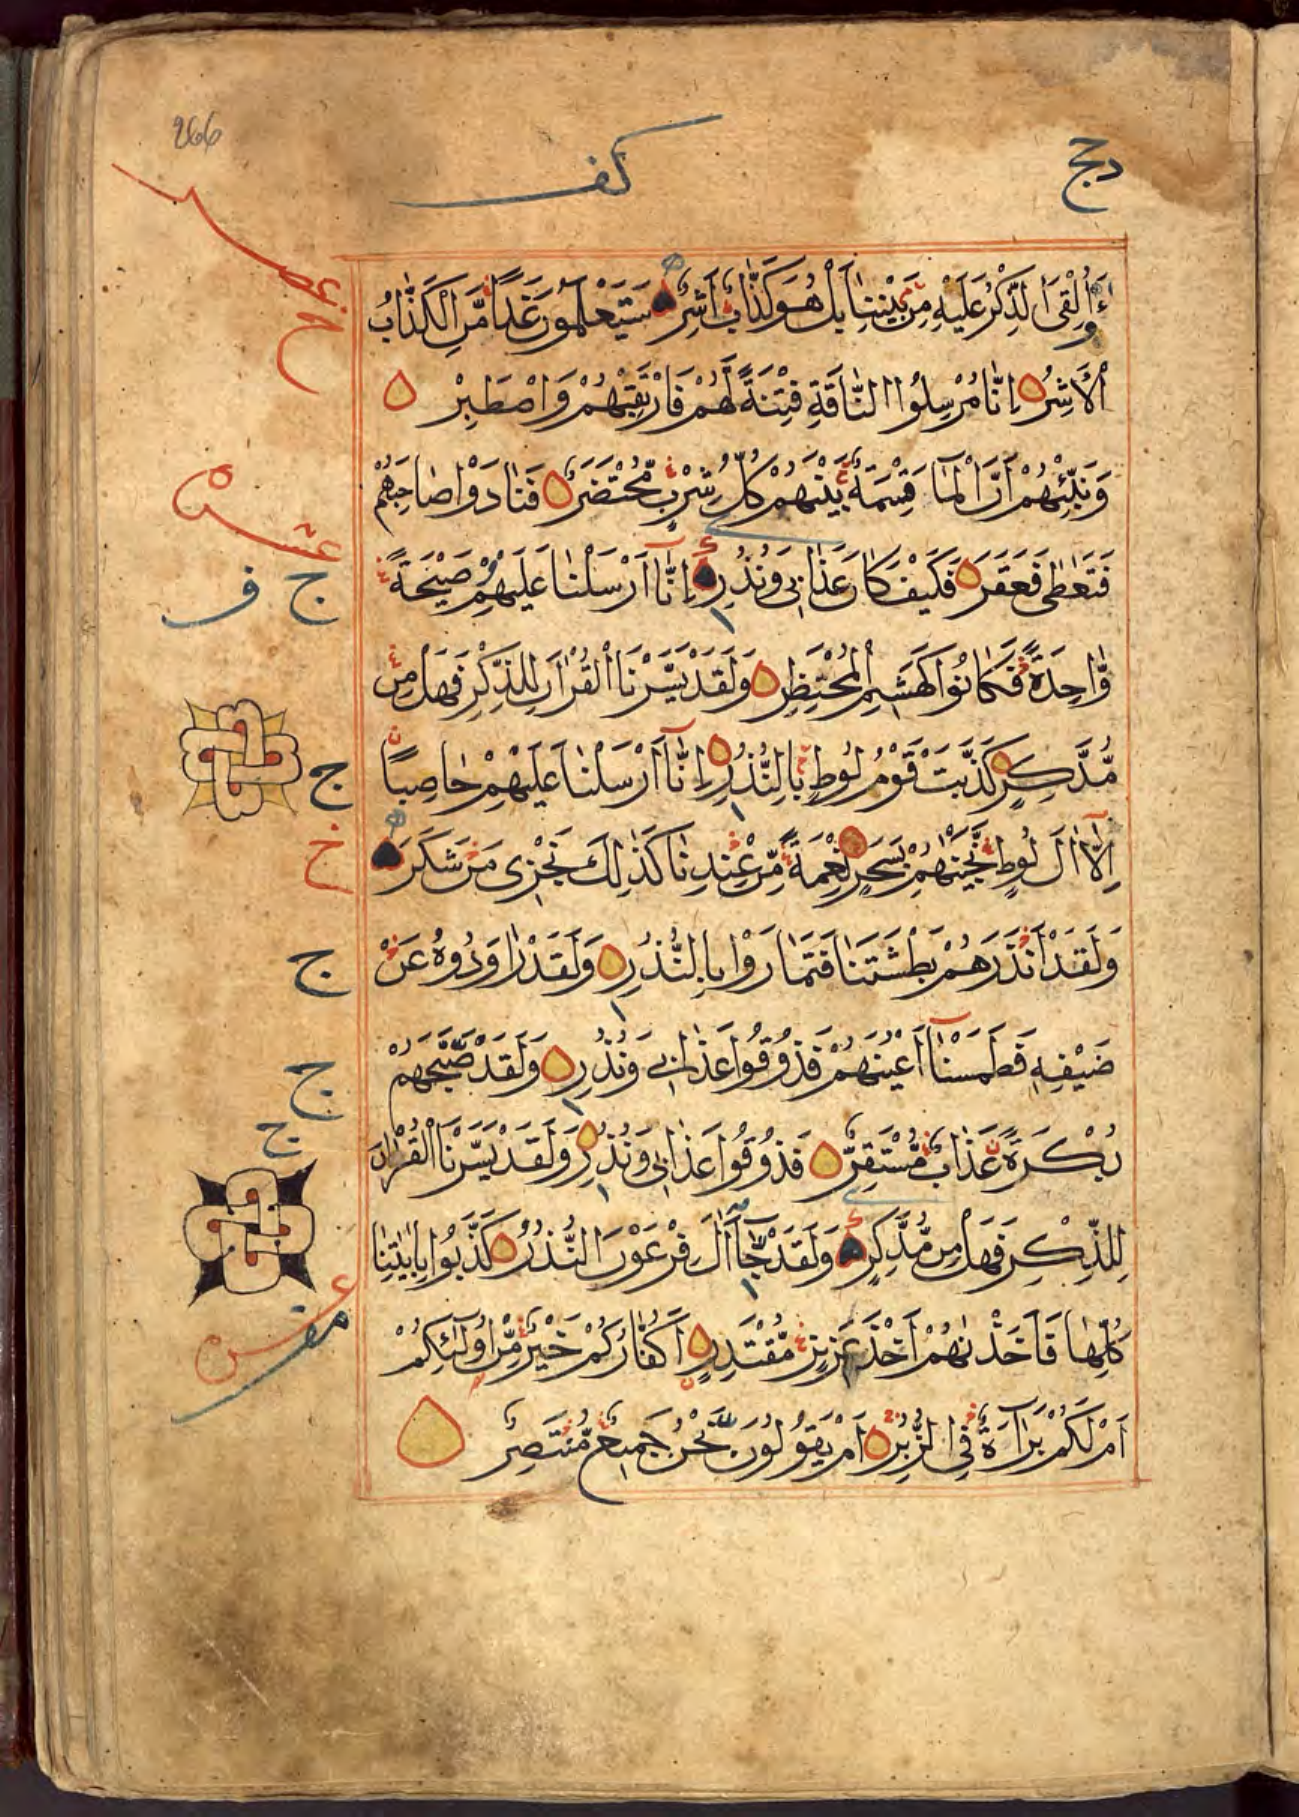 266
كف
ءَأُلْقِيَ الذِّكْرُ عَلَيْهِ مِنْ بَيْنِنَا بَلْ هُوَ كَذَّابٌ أَشِرٌ سَيَعْلَمُونَ غَدًا مَّنِ الْكَذَّابُ
الْأَشِرُ إِنَّا مُرْسِلُوا النَّاقَةِ فِتْنَةً لَّهُمْ فَارْتَقِبْهُمْ وَاصْطَبِرْ
وَنَبِّئْهُمْ أَنَّ الْمَآءَ قِسْمَةٌ بَيْنَهُمْ كُلُّ شِرْبٍ مُّحْتَضَرٌ فَنَادَوْا صَاحِبَهُمْ
عشر
فَتَعَاطٰى فَعَقَرَ فَكَيْفَ كَانَ عَذَابِي وَنُذُرِ إِنَّآ أَرْسَلْنَا عَلَيْهِمْ صَيْحَةً
ج ف
وَّاحِدَةً فَكَانُوا كَهَشِيمِ الْمُحْتَظِرِ وَلَقَدْ يَسَّرْنَا الْقُرْاٰنَ لِلذِّكْرِ فَهَلْ مِنْ
مُّدَّكِرٍ كَذَّبَتْ قَوْمُ لُوطٍ بِالنُّذُرِ إِنَّآ أَرْسَلْنَا عَلَيْهِمْ حَاصِبًا
ج
إِلَّآ اٰلَ لُوطٍ نَّجَّيْنٰهُمْ بِسَحَرٍ نِّعْمَةً مِّنْ عِنْدِنَا كَذٰلِكَ نَجْزِي مَنْ شَكَرَ
خ
وَلَقَدْ أَنْذَرَهُمْ بَطْشَتَنَا فَتَمَارَوْا بِالنُّذُرِ وَلَقَدْ رَاوَدُوهُ عَنْ
ج
ضَيْفِهِ فَطَمَسْنَآ أَعْيُنَهُمْ فَذُوقُوا عَذَابِي وَنُذُرِ وَلَقَدْ صَبَّحَهُمْ
ج
بُكْرَةً عَذَابٌ مُّسْتَقِرٌّ فَذُوقُوا عَذَابِي وَنُذُرِ وَلَقَدْ يَسَّرْنَا الْقُرْاٰنَ
ج
لِلذِّكْرِ فَهَلْ مِنْ مُّدَّكِرٍ وَلَقَدْ جَآءَ اٰلَ فِرْعَوْنَ النُّذُرُ كَذَّبُوا بِاٰيٰتِنَا
كُلِّهَا فَأَخَذْنٰهُمْ أَخْذَ عَزِيزٍ مُّقْتَدِرٍ أَكُفَّارُكُمْ خَيْرٌ مِّنْ أُولٰٓئِكُمْ
أَمْ لَكُمْ بَرَآءَةٌ فِي الزُّبُرِ أَمْ يَقُولُونَ نَحْنُ جَمِيعٌ مُّنْتَصِرٌ